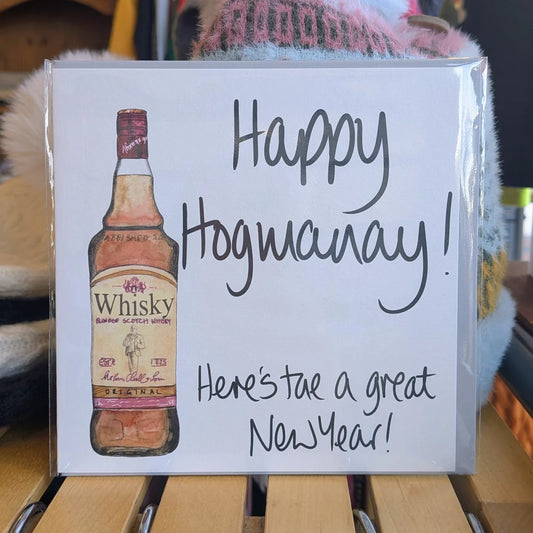 Happy
Hogmanay!
Whisky
BLENDED SCOTCH WHISKY
ORIGINAL
Here's tae a great
New Year!